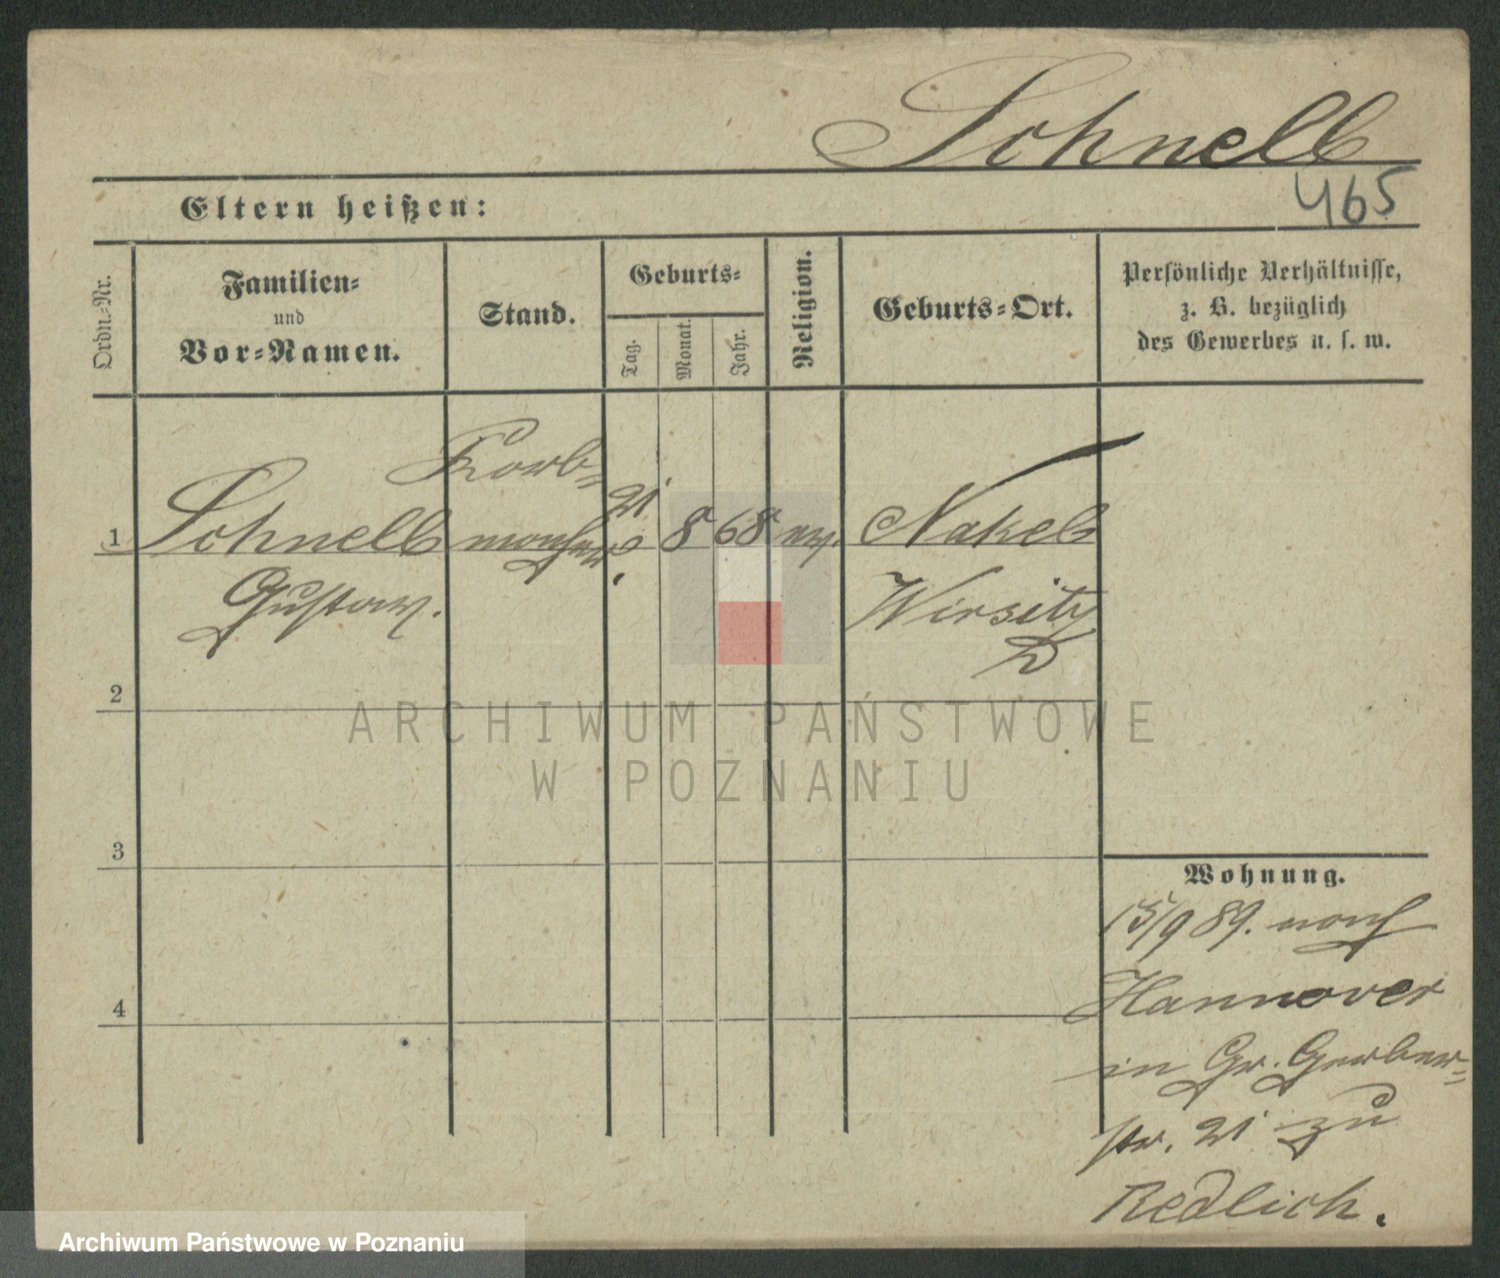 Schnell
465
Eltern heißen:
Ordn.-Nr.
Familien-
und
Vor-Namen.
Stand.
Geburts-
Tag.
Monat.
Jahr.
Religion.
Geburts-Ort.
Persönliche Verhältnisse,
z. B. bezüglich
des Gewerbes u. s. w.
1
Schnell
Gustav.
Korb-
macher
21
8
68
ev.
Nakel
Wirsitz
2
3
4
Wohnung.
15/9 89. nach
Hannover
in Gr. Gerber-
str. 21 zu
Redlich.
ARCHIWUM PAŃSTWOWE
W POZNANIU
Archiwum Państwowe w Poznaniu